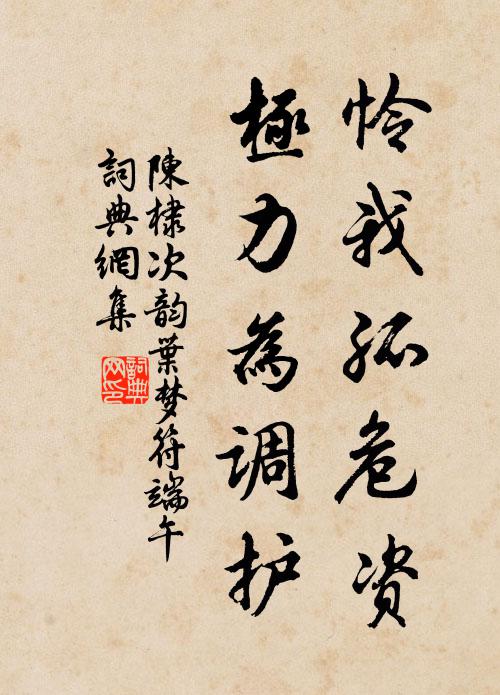 怜我孤危资
極力為调护
陳棣次韵葉梦符端午
詞典網集
詞典
网印